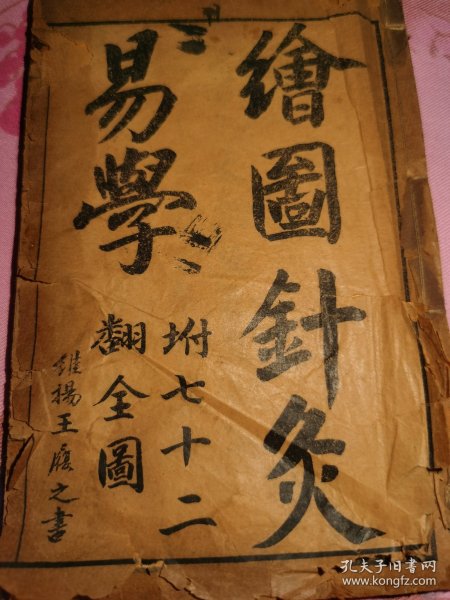 繪圖針灸
易學
坿七十二
翻全圖
維揚王履之書
孔夫子旧书网
www.kongfz.com